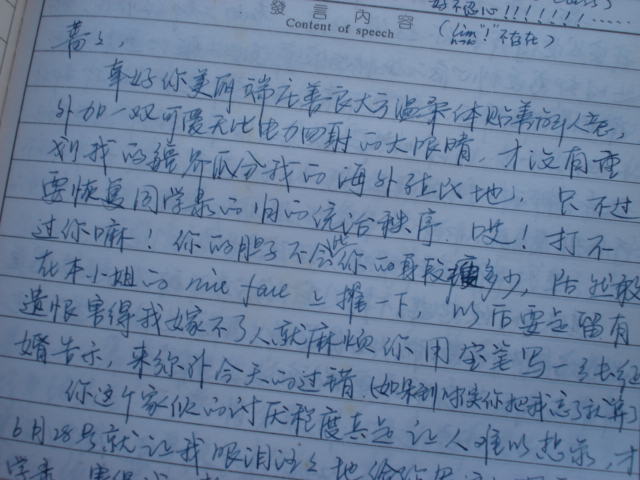 好不恶心!!!!!!!……
發言內容
Content of speech
(lim "!" 不存在)
n→∞
幸好你美丽端庄善良大方温柔体贴善解人意,
外加一双可爱无比电力四射的大眼睛,才没有重
划我的疆界瓜分我的海外殖民地,只不过
要恢复同学录的旧的统治秩序.哎!打不
过你嘛!你的胆子不会比你的身段瘦多少,居然敢
在本小姐的 nice face 上握一下,以后要是留有
遗恨害得我嫁不了人就麻烦你用空笔写一张红
婚告示,来弥补今天的过错.(如果到时候你把我忘了就算)
你这个家伙的讨厌程度真是让人难以想象,才
6月28号就让我眼泪汪汪地给你